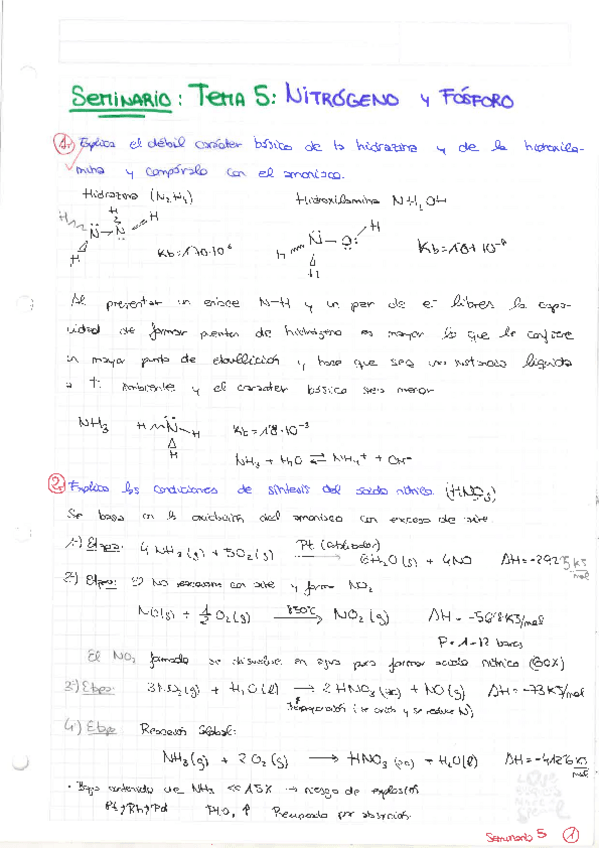 SEMINARIO: TEMA 5: NITRÓGENO Y FÓSFORO
1. Explica el débil carácter básico de la hidrazina y de la hidroxila-
mina y compáralo con el amoniaco.
Hidrazina (N₂H₄) Hidroxilamina NH₂OH
H H H
N–N
H
N–O: H
H
H
Al presentar un enlace N–H y un par de e⁻ libres la capa-
cidad de formar puentes de hidrógeno es mayor lo que le confiere
un mayor punto de ebullición y hace que sea una sustancia líquida
a Tª ambiente y el carácter básico sea menor
NH₃ H N H
H
NH₃ + H₂O ⇌ NH₄⁺ + OH⁻
2. Explica las condiciones de síntesis del ácido nítrico (HNO₃)
Se basa en la oxidación del amoniaco con exceso de aire.
1ª) Etapa: 4NH₃(g) + 5O₂(g) Pt (catalizador) → 6H₂O(g) + 4NO
2ª) Etapa: NO reacciona con aire y forma NO₂
NO(g) + 1/2 O₂(g) 850ºC → NO₂(g)
P = 1-12 bares
El NO₂ formado se disuelve en agua para formar ácido nítrico (60%)
3ª) Etapa: 3NO₂(g) + H₂O(l) → 2HNO₃(ac) + NO(g) ΔH = -73 KJ/mol
(se oxida y se reduce N)
4) Etapa Reacción Global:
NH₃(g) + 2O₂(g) → HNO₃(ac) + H₂O(l)
• Bajo contenido de NH₃ << 15% → riesgo de explosión
Pt/Rh/Pd PtO₂ ↑ Recuperado por absorción.
Seminario 5 1